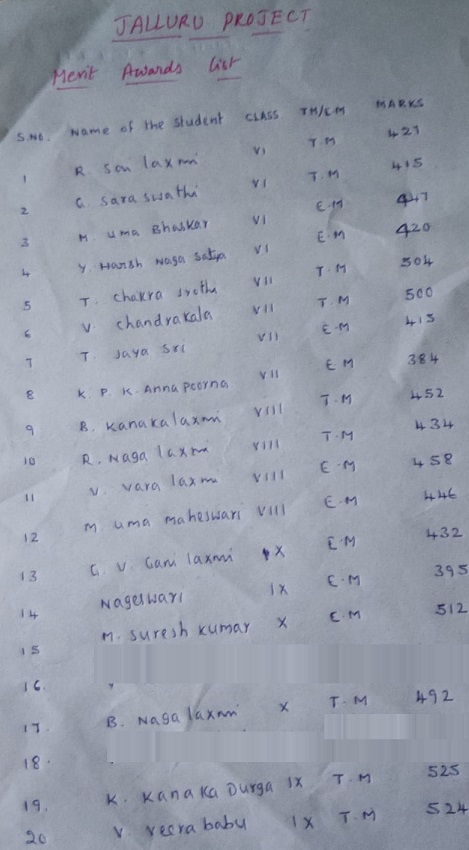 JALLURU PROJECT
Merit Awards List
S.NO. Name of the student CLASS TM/E.M MARKS
1 R. Son laxmi VI T.M 421
2 G. Saraswathi VI T.M 415
3 M. Uma Bhaskar VI E.M 447
4 Y. Harsh Naga Satya VI E.M 420
5 T. Chakra Jyothi VII T.M 504
6 V. Chandrakala VII T.M 500
7 T. Jaya Sri VII E.M 413
8 K. P. K. Anna Poorna VII E M 384
9 B. Kanakalaxmi VIII T.M 452
10 R. Naga laxmi VIII T.M 434
11 V. Vara laxmi VIII E.M 458
12 M Uma Maheswari VIII E.M 446
13 G. V. Gani laxmi IX E.M 432
14 Nageswari IX E.M 395
15 M. Suresh Kumar X E.M 512
16.
17 B. Naga laxmi X T.M 492
18.
19. K. Kanaka Durga IX T.M 525
20 V. Veerababu IX T.M 524